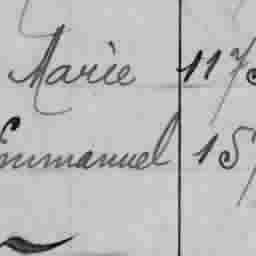 Marie 117
Emmanuel 15